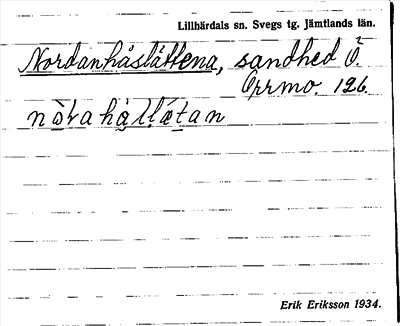 Lillhärdals sn. Svegs tg. Jämtlands län.
Nordanhåslåttena, sandhed Ö.
Orrmo. 126.
Erik Eriksson 1934.